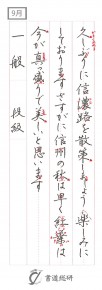 9月
久しぶりに信濃路を散策しよう楽しみに
しておりますさすがに信州の秋は早く紅葉は
今が真っ盛りで美しいと思います
一般 段級
書道総研